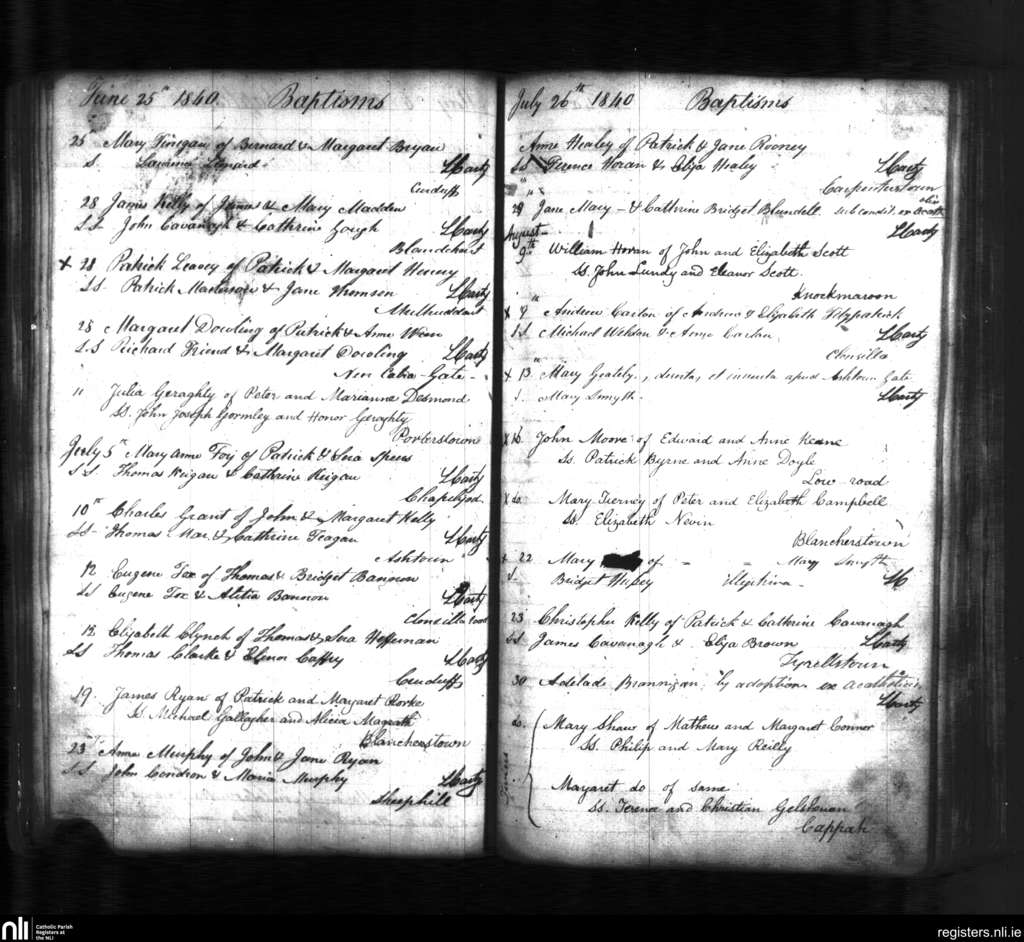 June 25th 1840 Baptisms
25th Mary Finegan of Bernard & Margaret Bryan
S. Lenard LCarty
Corduffs
28 James Kelly of James & Mary Madden
S.S. John Cavanagh & Cathrine Gough LCarty
Blanchst
x 28 Patrick Leavey of Patrick & Margaret
SS. Patrick & Jane Thomson LCarty
Mulhuddart
28 Margaret Dowling of Patrick & Anne
S.S Richard Friend & Margaret Dowling LCarty
New Cabra Gate
" Julia Geraghty of Peter and Marianne Desmond
SS. John Joseph Gormley and Honor Geraghty
Porterstown
July 5th Mary Anne Foy of Patrick & Speers
SS Thomas Keigan & Cathrine Keigan LCarty
Chapelizod
10th Charles Grant of John & Margaret Kelly
SS Thomas & Cathrine Teagan LCarty
Ashtown
12 Eugene Fox of Thomas & Bridget Bannon
SS Eugene Fox & Alitia Bannon LCarty
Clonsilla road
12 Elizabeth Clynch of Thomas & Heffernan
SS Thomas Clarke & Elenor Caffry LCarty
Corduffs
19. James Ryan of Patrick and Margaret Rorke
SS Michael Gallagher and Alicia Magrath
Blancherstown
23rd Anne Murphy of John & Jane Ryan
SS John Condron & Maria Murphy LCarty
Sheephill
July 26th 1840 Baptisms
Anne Healey of Patrick & Jane Rooney
SS Terence Horan & Eliza Healey LCarty
Carpenterstown
29 Jane Mary & Cathrine Bridget Blundell sub condit. ex
LCarty
August
9th William Horan of John and Elizabeth Scott
SS. John Lundy and Eleanor Scott
Knockmaroon
x 9 Andrew Carton of Andrew & Elizabeth Fitzpatrick
SS Michael Whelan & Anne Carton LCarty
Clonsilla
x 13 Mary Geately, et inventa apud Ashtown Gate
S. Mary Smyth LCarty
x 16 John Moore of Edward and Anne Keane
SS. Patrick Byrne and Anne Doyle
Low-road
x do Mary Tierney of Peter and Elizabeth Campbell
SS. Elizabeth Nevin
Blancherstown
x 22 Mary of - - Mary Smyth
S. Bridget
23 Christopher Kelly of Patrick & Cathrine Cavanagh
SS James Cavanagh & Eliza Brown LCarty
Tyrellstown
30 Adelade Brannigan by adoption ex acatholicis
LCarty
do Mary Shaw of Mathew and Margaret Connor
SS. Philip and Mary Reilly
Twins
Margaret do of same
SS. Terence and Christian
Cappah
nli
Catholic Parish
Registers at
the NLI
registers.nli.ie